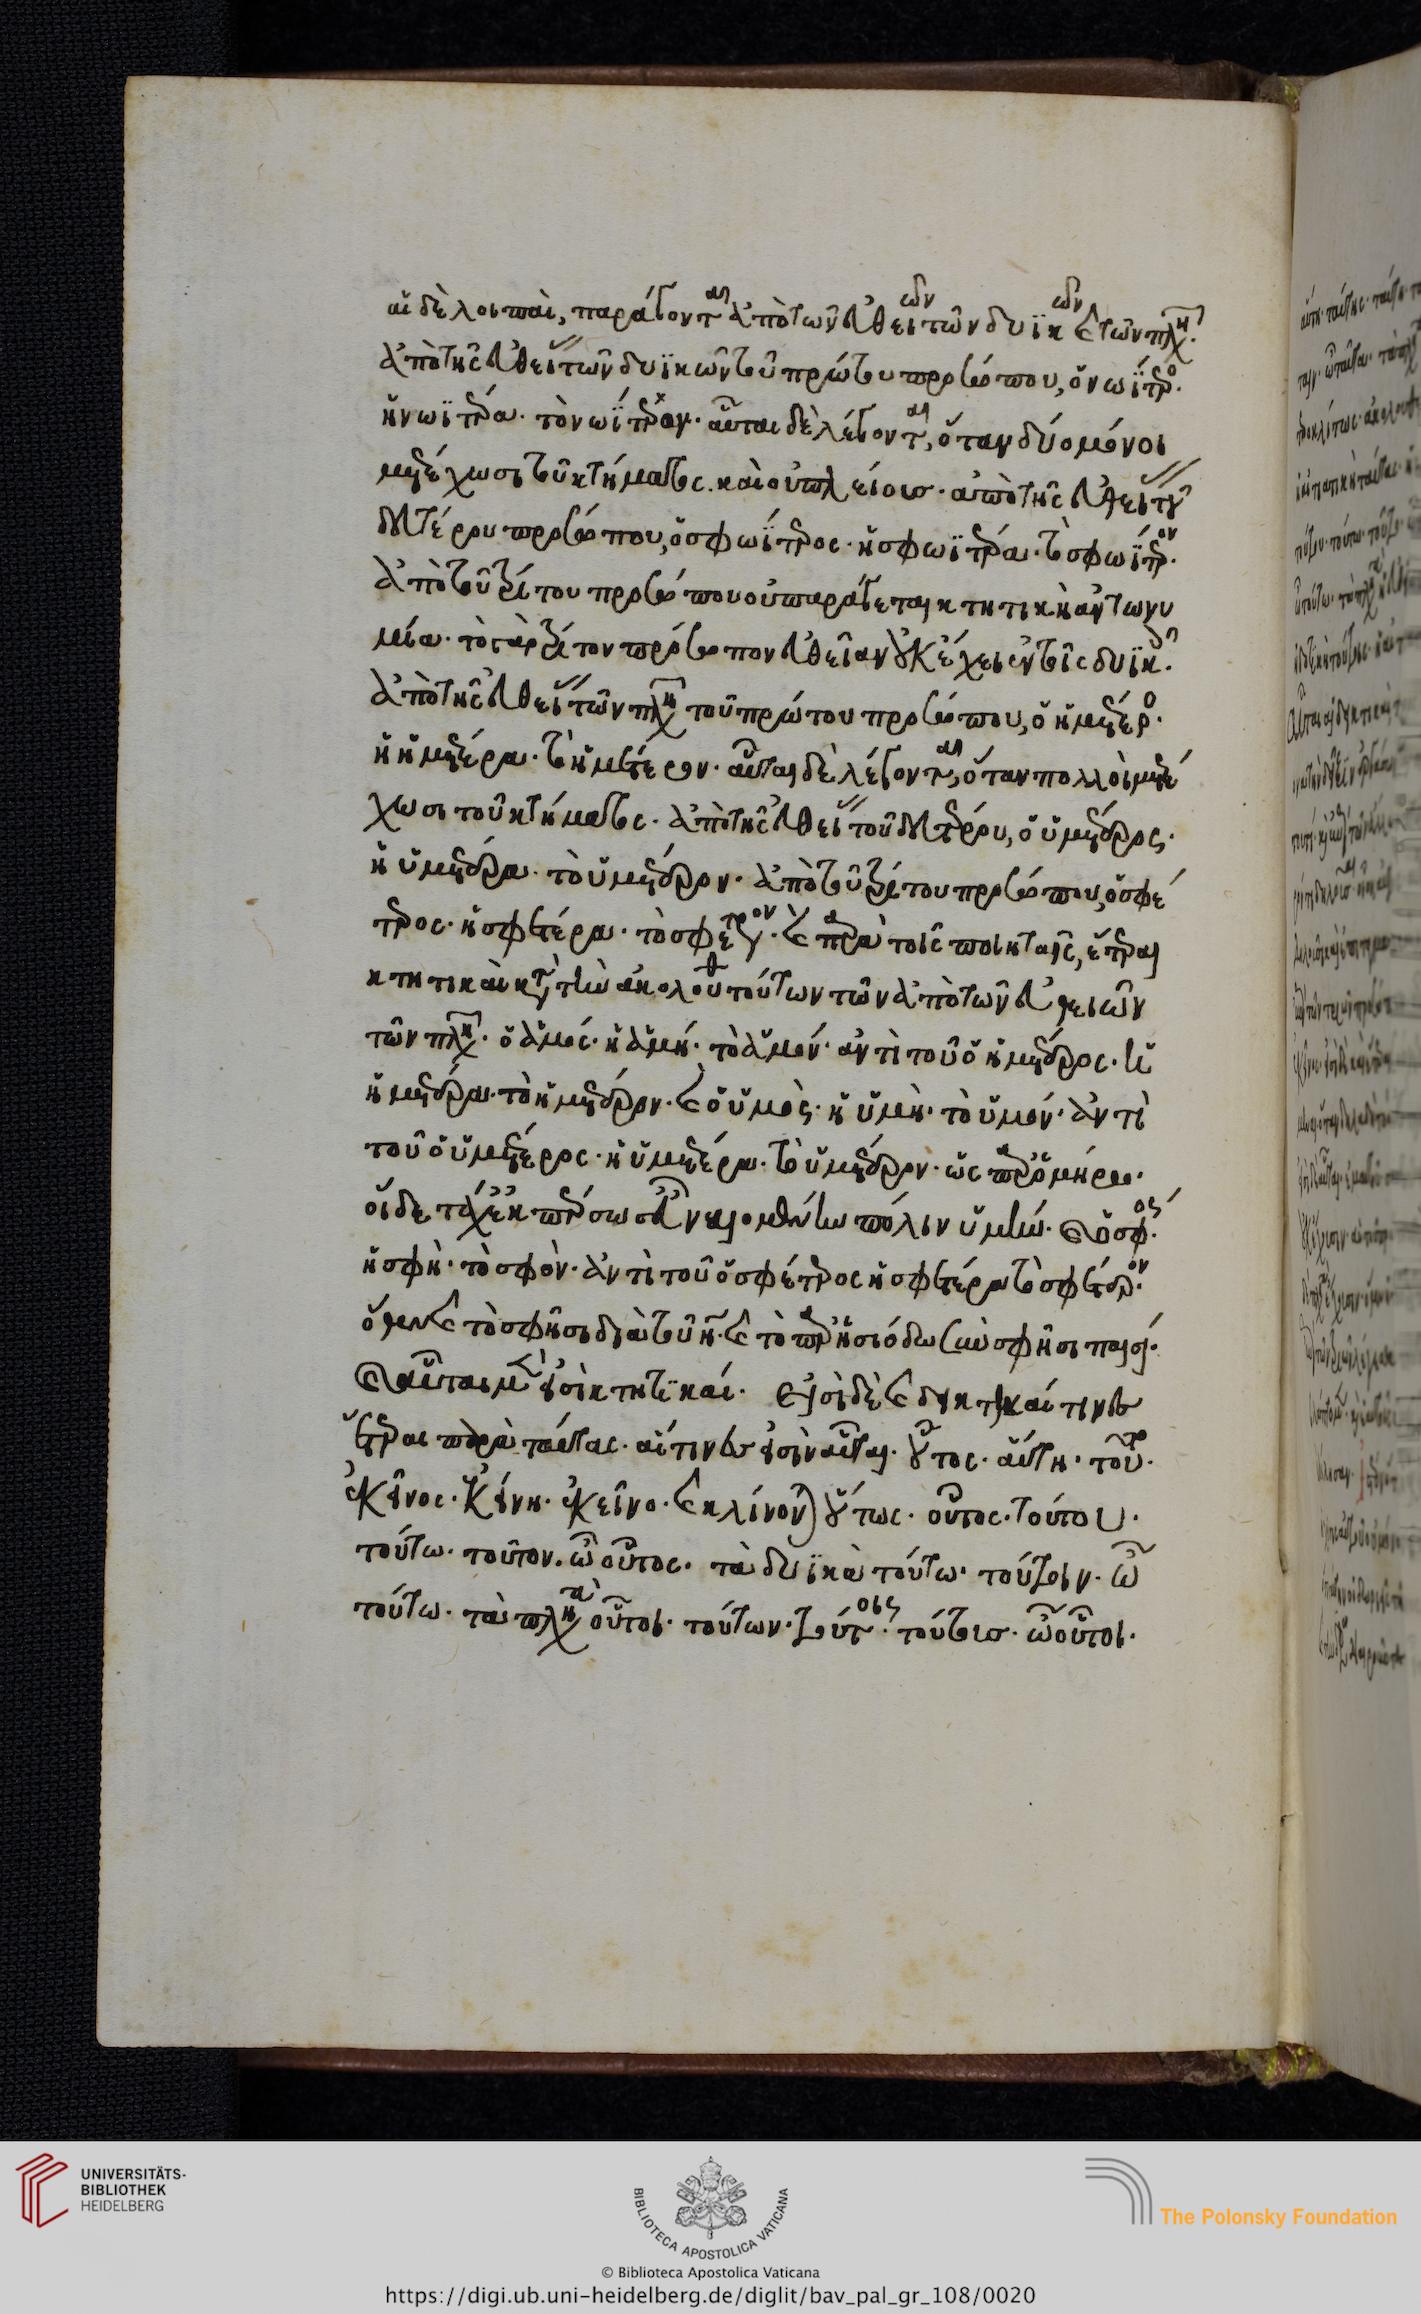 αἱ δὲ λοιπαὶ, παράγονται ἀπὸ τῶν εὐθειῶν τῶν δυϊκῶν καὶ τῶν πλη.
ἀπὸ τῆς εὐθείας τῶν δυϊκῶν τοῦ πρώτου προσώπου, ὁ νωΐτερο.
ἡ νωϊτέρα. τὸ νωΐτερον. αὗται δὲ λέγονται, ὅταν δύο μόνοι
μετέχωσι τοῦ κτήματος. καὶ οὐ πλείους. ἀπὸ τῆς εὐθείας τοῦ
δευτέρου προσώπου, ὁ σφωΐτερος. ἡ σφωϊτέρα. τὸ σφωΐτερον.
ἀπὸ τοῦ τρίτου προσώπου οὐ παράγεται κτητικὴ ἀντωνυ
μία. τὸ γὰρ τρίτον πρόσωπον εὐθεῖαν οὐκ ἔχει ἐν τοῖς δυϊκ.
ἀπὸ τῆς εὐθείας τῶν πλη τοῦ πρώτου προσώπου, ὁ ἡμέτερο.
ἡ ἡμετέρα. τὸ ἡμέτερον. αὗται δὲ λέγονται, ὅταν πολλοὶ μετέ
χωσι τοῦ κτήματος. ἀπὸ τῆς εὐθείας τοῦ δευτέρου, ὁ ὑμέτερος.
ἡ ὑμετέρα. τὸ ὑμέτερον. ἀπὸ τοῦ τρίτου προσώπου, ὁ σφέ
τερος. ἡ σφετέρα. τὸ σφέτερον. καὶ παρὰ τοῖς ποιηταῖς, ἕτεραι
κτητικαὶ κατὰ τὴν ἀκολου τούτων τῶν ἀπὸ τῶν εὐθειῶν
τῶν πλη. ὁ ἁμός. ἡ ἁμή. τὸ ἁμόν. ἀντὶ τοῦ ὁ ἡμέτερος. ἡ
ἡμετέρα. τὸ ἡμέτερον. καὶ ὁ ὑμὸς. ἡ ὑμὴ. τὸ ὑμόν. ἀντὶ
τοῦ ὁ ὑμέτερος. ἡ ὑμετέρα. τὸ ὑμέτερον. ὡς παρ' ὁμήρω.
οἵδε τάχ' ἐκπέρσουσι ναιομένην πόλιν ὑμήν. καὶ ὁ σφός.
ἡ σφὴ. τὸ σφὸν. ἀντὶ τοῦ ὁ σφέτερος ἡ σφετέρα τὸ σφέτερον
ὅθεν καὶ τὸ σφῆσι διὰ τοῦ η. καὶ τὸ παρ' ἡσιόδω σὺν σφῆσι παισί.
καὶ αὗται μέν εἰσι κτητικαί. εἰσὶ δὲ καὶ δεικτικαί τινες
ἕτεραι παρὰ ταύτας. αἵτινες εἰσὶν αὗται. οὗτος. αὕτη. τοῦτο.
ἐκεῖνος. ἐκείνη. ἐκεῖνο. καὶ κλίνονται οὕτως. οὗτος. τούτου.
τούτω. τοῦτον. ὦ οὗτος. τὰ δυϊκὰ τούτω. τούτοιν. ὦ
τούτω. τὰ πληκὰ οὗτοι. τούτων. τούτοις. τούτους. ὦ οὗτοι.
UNIVERSITÄTS-
BIBLIOTHEK
HEIDELBERG
BIBLIOTECA APOSTOLICA VATICANA
The Polonsky Foundation
© Biblioteca Apostolica Vaticana
https://digi.ub.uni-heidelberg.de/diglit/bav_pal_gr_108/0020